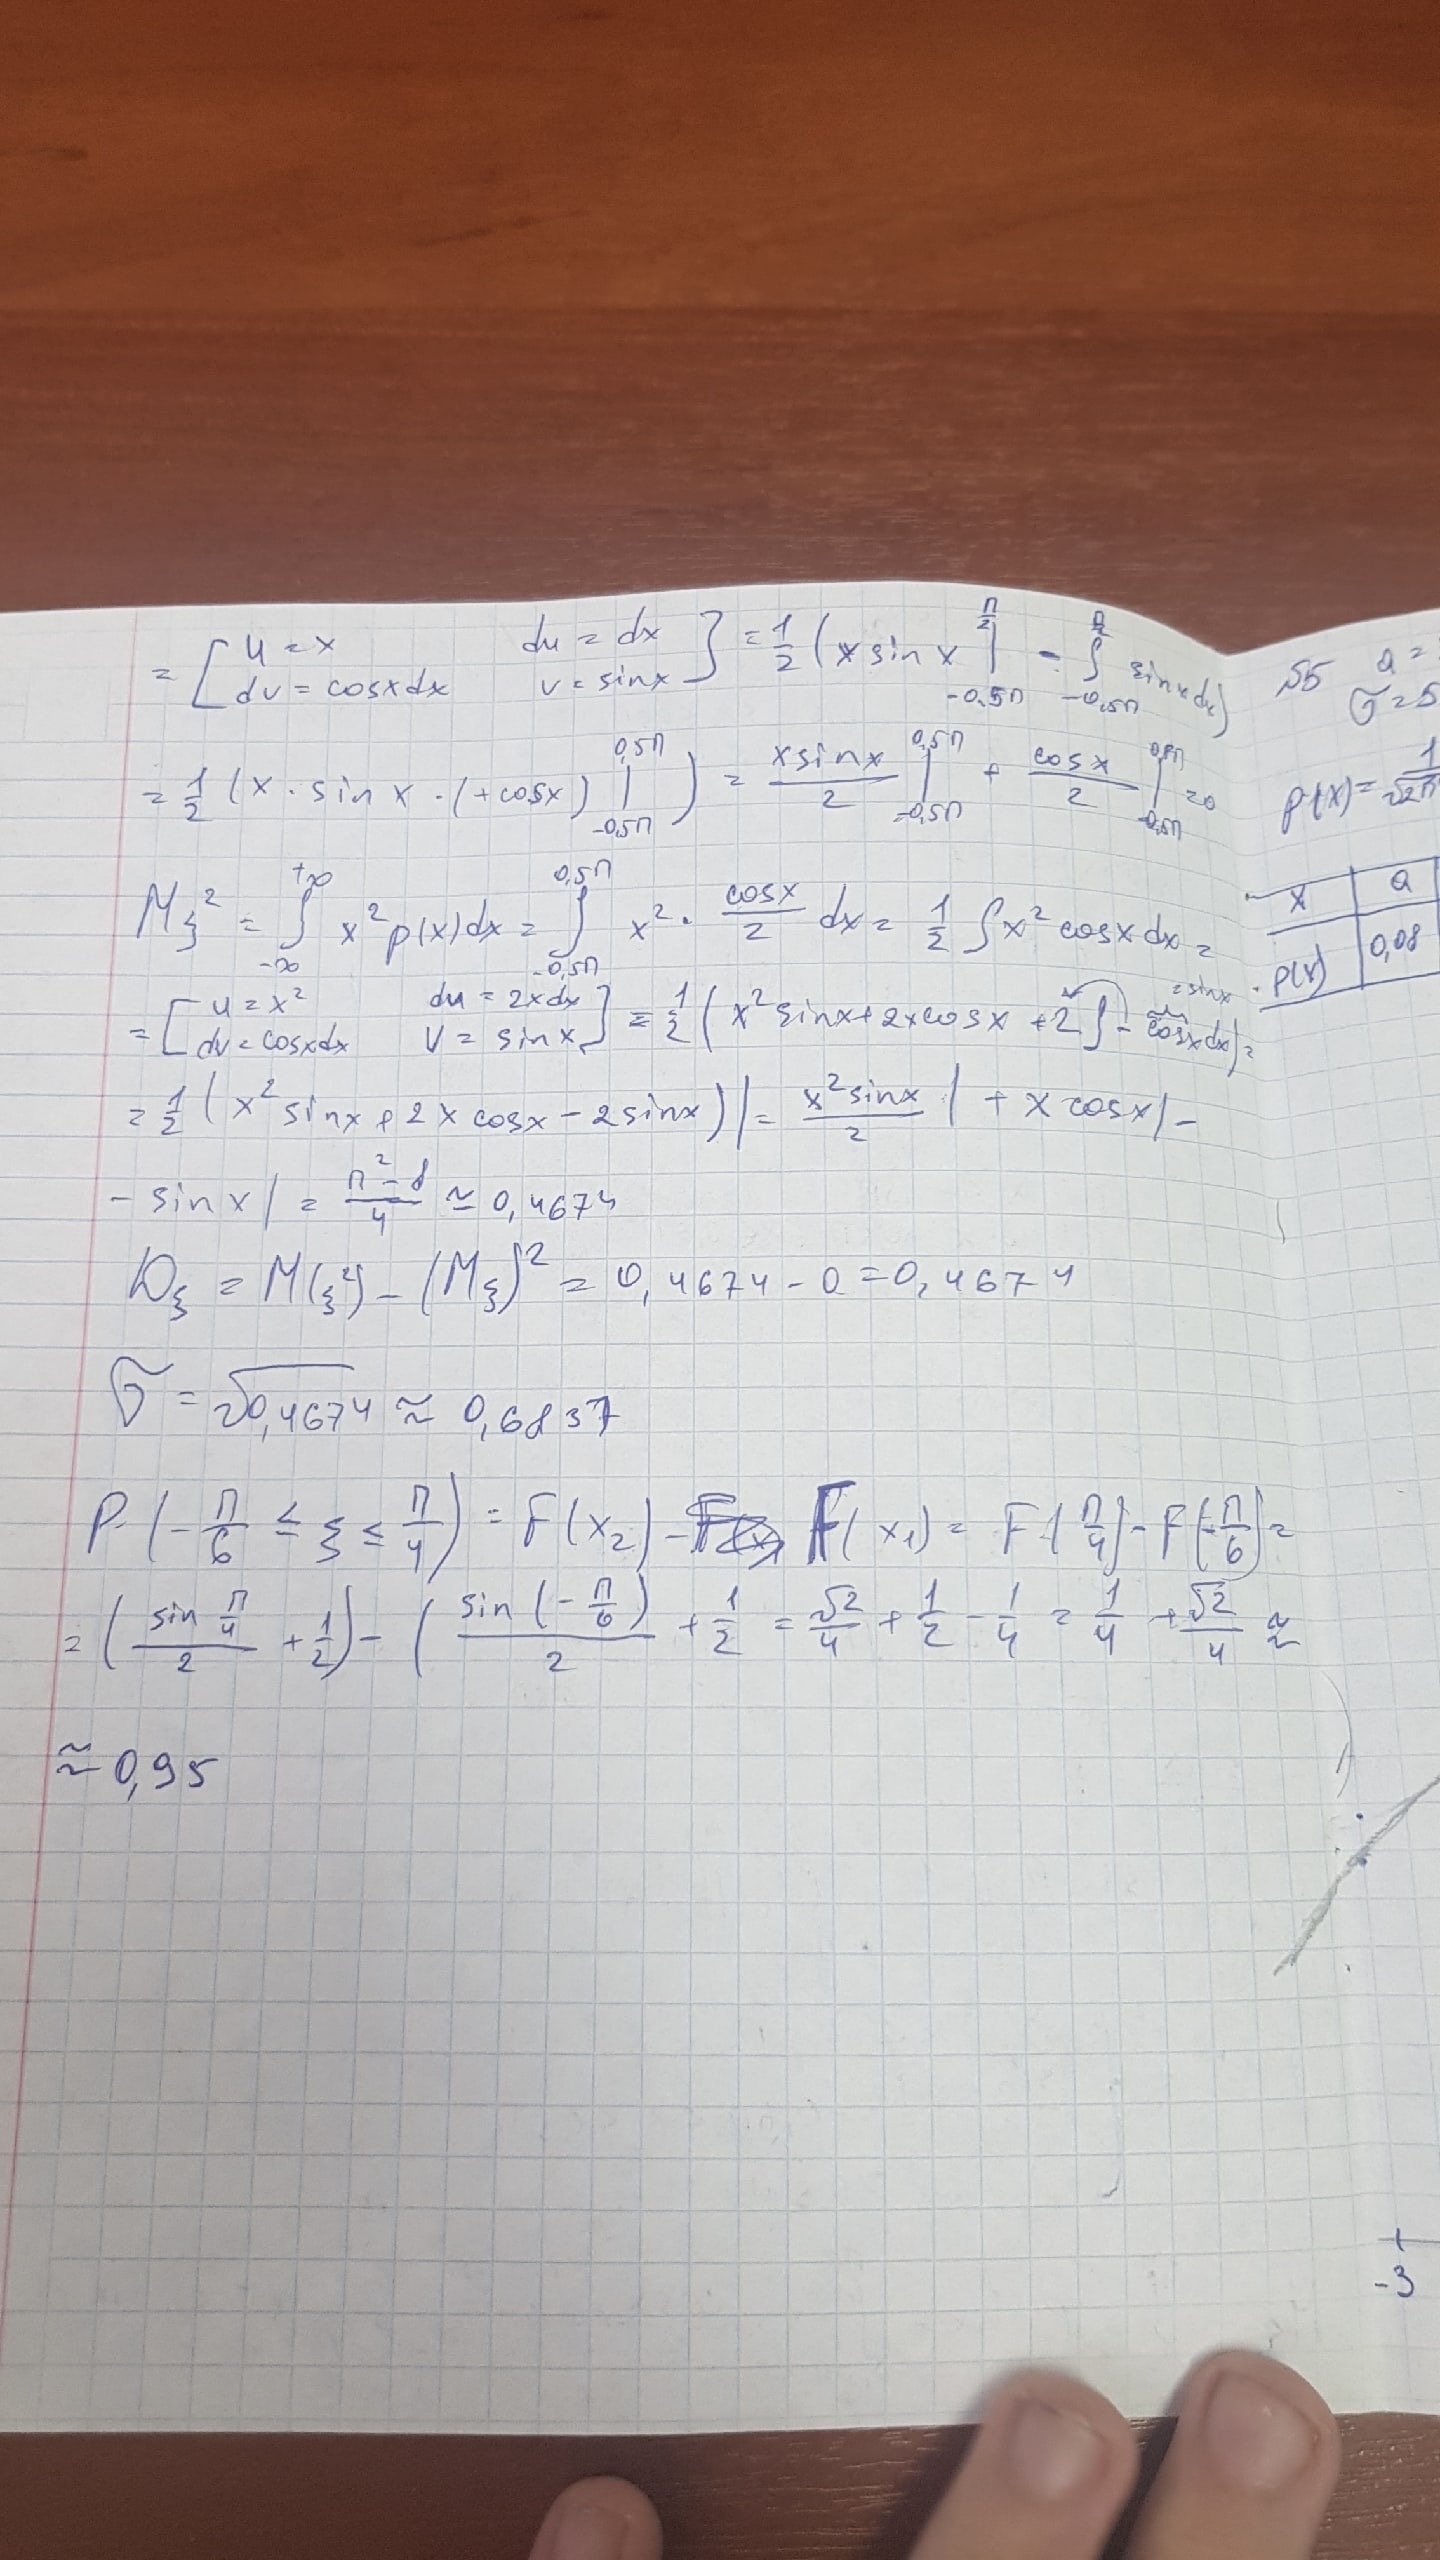 = [ u = x   du = dx
dv = cosxdx   v = sinx ] = 1/2 ( x sin x |_{-0,5π}^{π/2} - ∫_{-0,5π}^{π/2} sinx dx )
= 1/2 ( x · sin x · (+cosx) |_{-0,5π}^{0,5π} ) = x sin x / 2 |_{-0,5π}^{0,5π} + cosx / 2 |_{-0,5π}^{0,5π} = 0
Mξ² = ∫_{-∞}^{+∞} x² p(x)dx = ∫_{-0,5π}^{0,5π} x² · cosx / 2 dx = 1/2 ∫x² cosx dx =
= [ u = x²   du = 2xdx
dv = cosxdx   v = sinx ] = 1/2 ( x² sinx + 2xcosx + 2 ∫ - cosx dx ) =
= sinx
= 1/2 ( x² sinx + 2x cosx - 2 sinx ) | = x² sinx / 2 | + x cosx | -
- sin x | = π² - 8 / 4 ≈ 0,4674
Dξ = M(ξ²) - (Mξ)² = 0,4674 - 0 = 0,4674
σ = √0,4674 ≈ 0,6837
P (- π/6 ≤ ξ ≤ π/4) = F(x₂) - F(x₁) = F(π/4) - F(-π/6) =
= ( sin π/4 / 2 + 1/2 ) - ( sin (- π/6) / 2 + 1/2 = √2/4 + 1/2 - 1/4 = 1/4 + √2/4 ≈
≈ 0,95
55   a =
σ = 5
p(x) = 1/√2π
x | a
p(x) | 0,08
-3